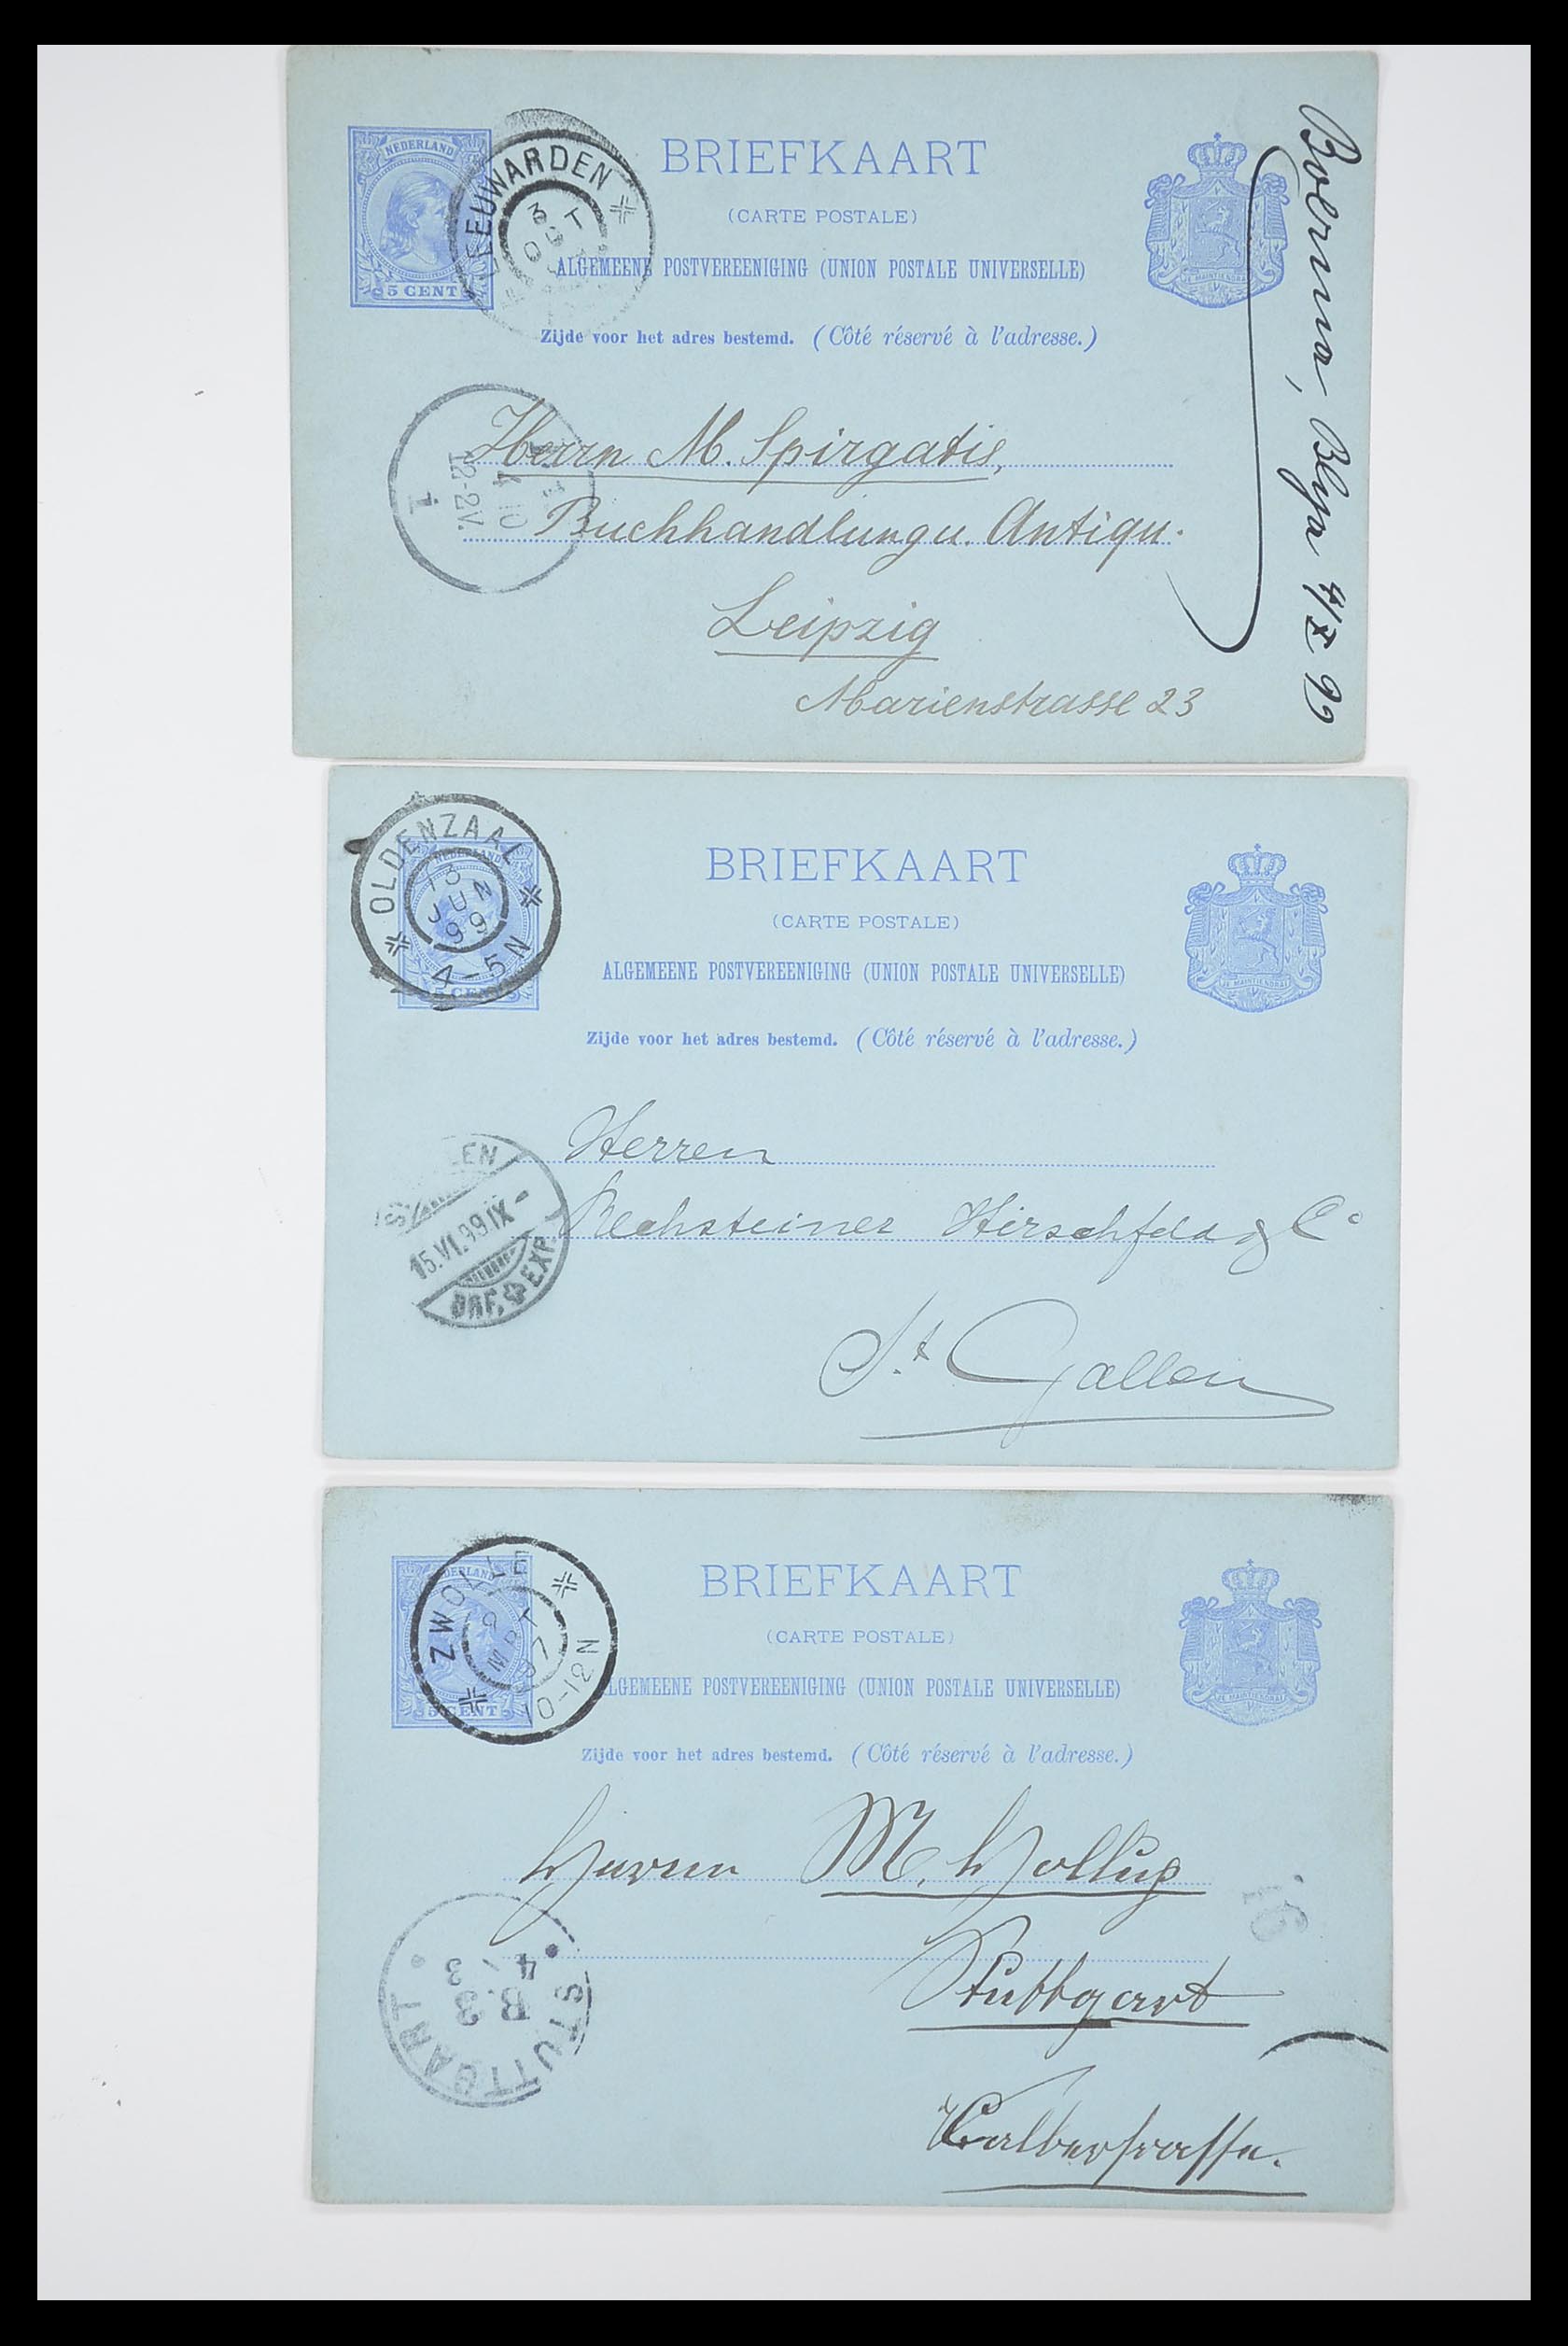 BRIEFKAART
(CARTE POSTALE)
ALGEMEENE POSTVEREENIGING (UNION POSTALE UNIVERSELLE)
Zijde voor het adres bestemd. (Côté réservé à l'adresse.)
NEDERLAND
5 CENT
LEEUWARDEN
3 OCT
JE MAINTIENDRAI
12-2V.
1
Herrn M. Spirgatis,
Buchhandlung u. Antiqu.
Leipzig
Marienstrasse 23
4/X 99
BRIEFKAART
(CARTE POSTALE)
ALGEMEENE POSTVEREENIGING (UNION POSTALE UNIVERSELLE)
Zijde voor het adres bestemd. (Côté réservé à l'adresse.)
NEDERLAND
5 CENT
OLDENZAAL
13
JUN
99
4-5N
JE MAINTIENDRAI
Herren
Rechsteiner Hirschfeld & Co
St. Gallen
15.VI.99.IX-
BRF. EXP.
BRIEFKAART
(CARTE POSTALE)
ALGEMEENE POSTVEREENIGING (UNION POSTALE UNIVERSELLE)
Zijde voor het adres bestemd. (Côté réservé à l'adresse.)
NEDERLAND
5 CENT
ZWOLLE
2
MRT
97
10-12N
JE MAINTIENDRAI
Herrn M. Hollup
Stuttgart
Calwerstrasse.
STUTTGART
B.3
4 3
16